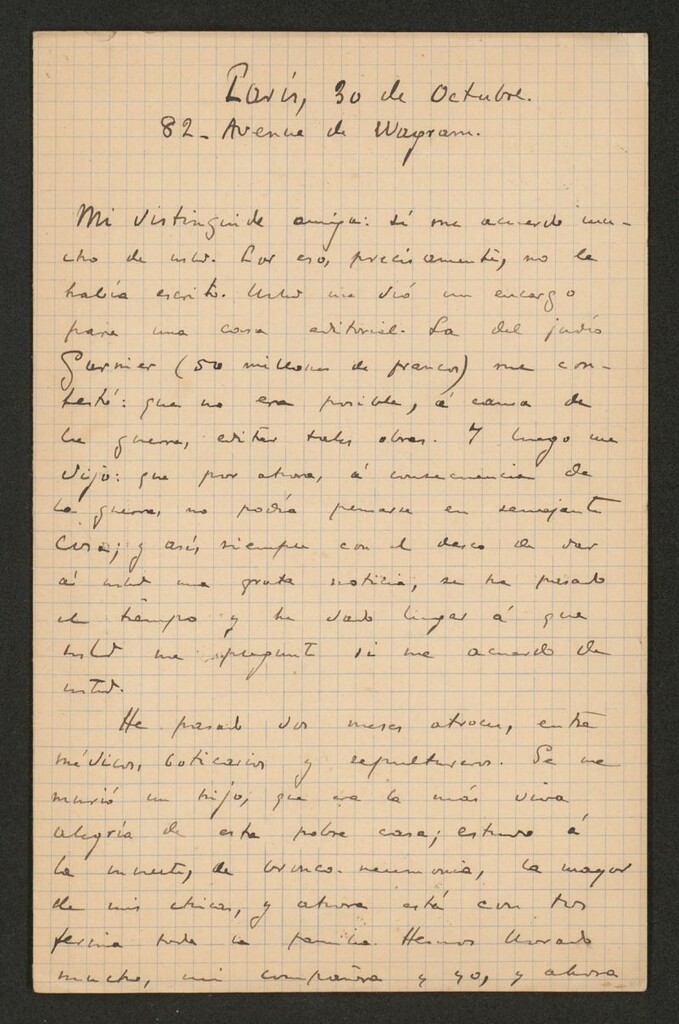 París, 30 de Octubre.
82- Avenue de Wagram.
Mi distinguida amiga: sí me acuerdo mu-
cho de usted. Por eso, precisamente, no le
había escrito. Usted me dió un encargo
para una casa editorial. La del judío
Garnier (50 millones de francos) me con-
testó: que no era posible, á causa de
la guerra, editar tales obras. Y luego me
dijo: que por ahora, á consecuencia de
la guerra, no podía pensarse en semejante
cosa; y así, siempre con el deseo de dar
á usted una grata noticia, se ha pasado
el tiempo y ha dado lugar á que
usted me pregunte si me acuerdo de
usted.
He pasado dos meses atroces, entre
médicos, boticarios y sepultureros. Se me
murió un hijo, que era la más viva
alegría de esta pobre casa; estuvo á
la muerte, de bronco-neumonia, la mayor
de mis chicas, y ahora está con tos
ferina toda la familia. Hemos llorado
mucho, mi compañera y yo, y ahora